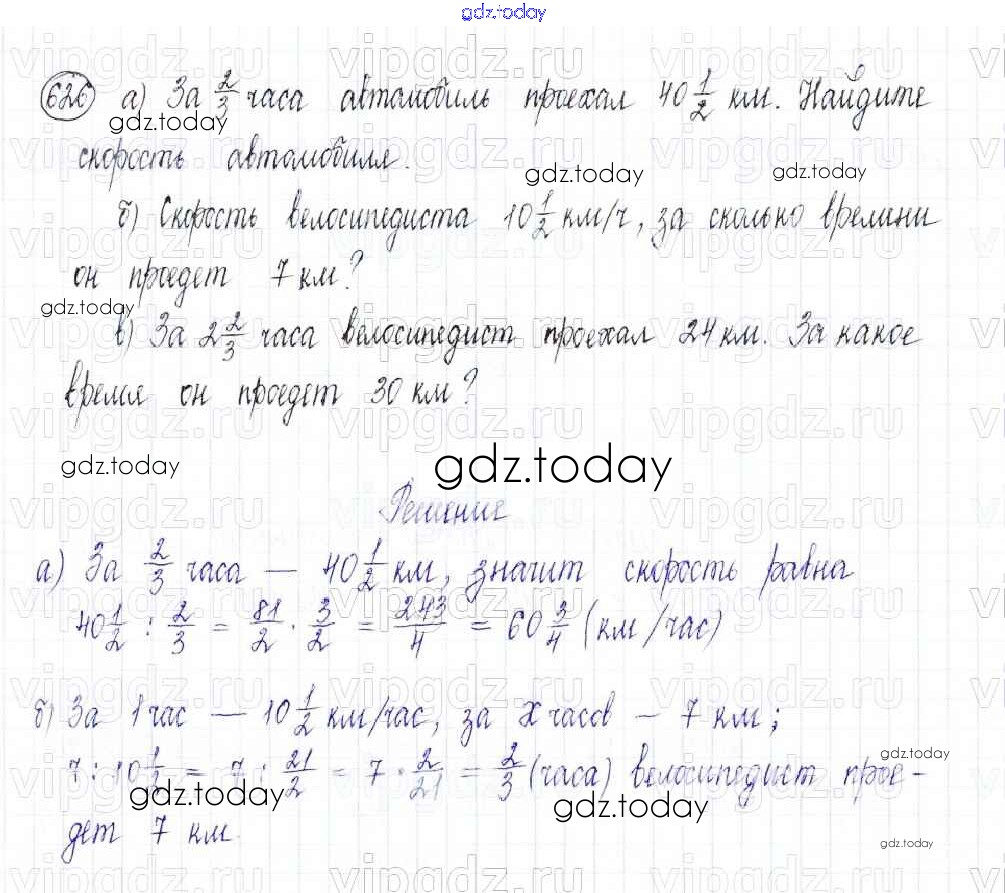 gdz.today
626 а) За 2/3 часа автомобиль проехал 40 1/2 км. Найдите
gdz.today
скорость автомобиля.
gdz.today gdz.today
б) Скорость велосипедиста 10 1/2 км/ч, за сколько времени
он проедет 7 км?
gdz.today
в) За 2 2/3 часа велосипедист проехал 24 км. За какое
время он проедет 30 км?
gdz.today gdz.today
Решение
а) За 2/3 часа — 40 1/2 км, значит скорость равна
40 1/2 : 2/3 = 81/2 · 3/2 = 243/4 = 60 3/4 (км/час)
б) За 1 час — 10 1/2 км/час, за x часов — 7 км;
gdz.today
7 : 10 1/2 = 7 : 21/2 = 7 · 2/21 = 2/3 (часа) велосипедист прое-
gdz.today gdz.today
дет 7 км.
gdz.today
vipgdz.ru